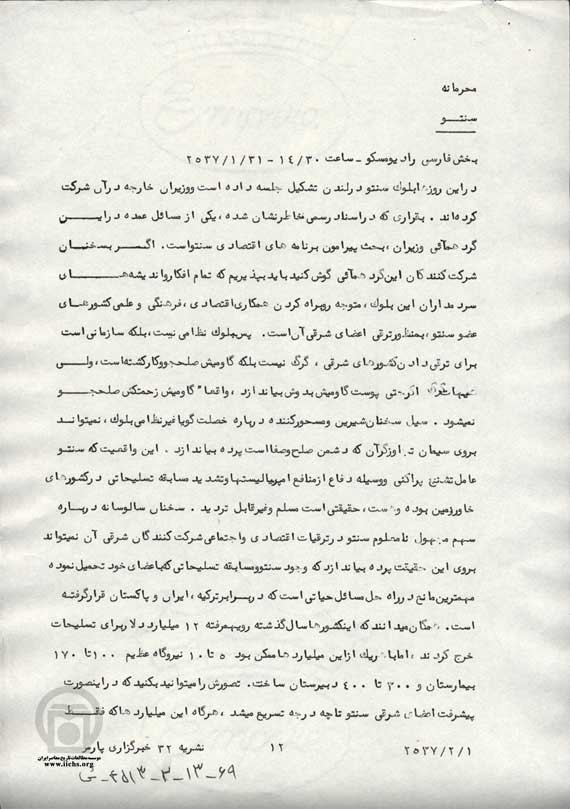 محرمانه
سنتو
بخش فارسی رادیو مسکو ـ ساعت ۱۴/۳۰ - ۲۵۳۷/۱/۳۱
در این روزها بلوک سنتو در لندن تشکیل جلسه داده است و وزیران خارجه در آن شرکت
کرده‌اند . بقراری که در اسناد رسمی خاطرنشان شده ، یکی از مسائل عمده در ایـــن
گرد همآئی وزیران ، بحث پیرامون برنامه های اقتصادی سنتو است . اگــر بسخنـان
شرکت کنندگان این گرد همآئی گوش کنید باید بپذیریم که تمام افکار و اندیشه‌هــــای
سرمداران این بلوک ، متوجه روبراه کردن همکاری اقتصادی ، فرهنگی و علمی کشورهــای
عضو سنتو ، بمنظور ترقی اعضای شرقی آن است . پس بلوک نظامی نیست ، بلکه سازمانی است
برای ترقی دادن کشورهای شرقی ، گرگ نیست بلکه گاومیش صلحجو و کارکشته است ، ولــی
گرگ اگر حتی پوست گاومیش بدوش بیاندازد ، واقعا" گاومیش زحمتکش صلحجــو
نمیشود . سیل سخنان شیرین و مسحور کننده درباره خصلت گویا غیرنظامی بلوک ، نمیتوانــد
بروی سیمای تجاوزگر آن که دشمن صلح و صفا است پرده بیاندازد . این واقعیت که سنتــو
عامل تشنج پراکنی و وسیله دفاع از منافع امپریالیستها و تشدید مسابقه تسلیحاتی در کشورهای
خاور زمین بوده و هست ، حقیقتی است مسلم و غیرقابل تردید . سخنان سالوسانه دربــاره
سهم مجهول نامعلوم سنتو در ترقیات اقتصادی و اجتماعی شرکت کنندگان شرقی آن نمیتواند
بروی این حقیقت پرده بیاندازد که وجود سنتو و مسابقه تسلیحاتی که باعضای خود تحمیل نموده
مهمترین مانع در راه حل مسائل حیاتی است که در برابر ترکیه ، ایران و پاکستان قرار گرفتـه
است . همگان میدانند که این کشورها سال گذشته رویهمرفته ۱۲ میلیارد دلار برای تسلیحات
خرج کردند ، اما با هر یک از این میلیارد ها ممکن بود ۵ تا ۱۰ نیروگاه عظیم ۱۰۰ تا ۱۷۰
بیمارستان و ۳۰۰ تا ۴۰۰ دبیرستان ساخت . تصورش را میتوانید بکنید که در اینصورت
پیشرفت اعضای شرقی سنتو تا چه درجه تسریع میشد ، هرگاه این میلیارد ها که فقــط
۲۵۳۷/۲/۱ ۱۲ نشریه ۳۲ خبرگزاری پارس
موسسه مطالعات تاریخ معاصر ایران
www.iichs.org